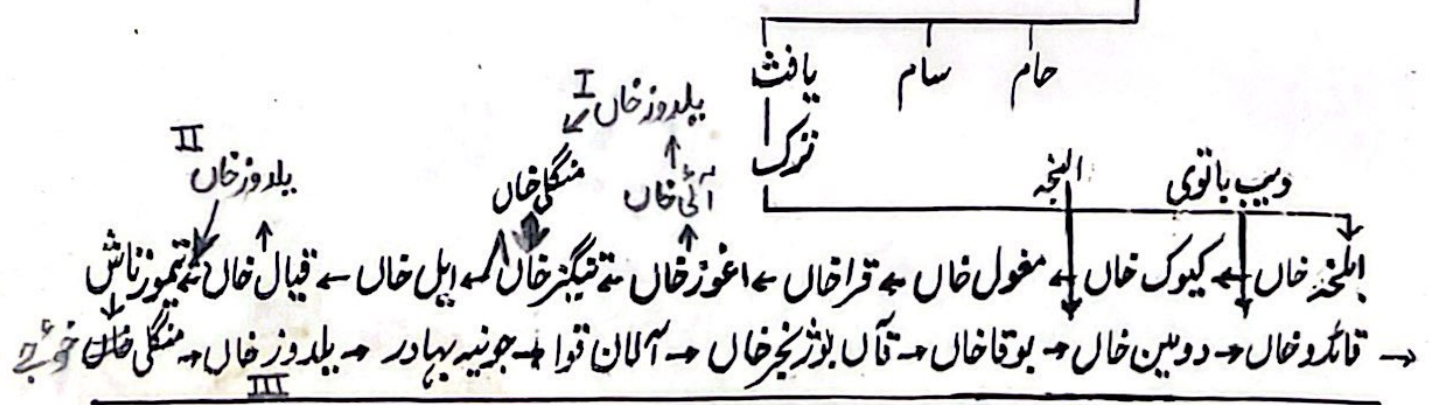 حام سام یافث
یلدوز خاں I
ترک
II
یلدوز خاں منگلی خاں آئی خاں النجہ دیب باقوی
ایلخہ خاں ← کیوک خاں ← مغول خاں ← قراخاں ← اغوز خاں ← تنگیز خاں ← ایل خاں ← قیال خاں ← تیموز تاش
قائدو خاں → دومین خاں → بوقا خاں → قآں بوزنجر خاں → آلان قوا → جوئنیہ بہادر → یلدوز خاں → منگلی خاں
III